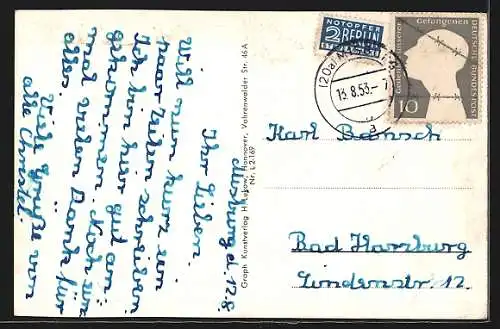 Ihr Lieben.
Will nun kurz ein
paar Zeilen schreiben
Ich bin hier gut an-
gekommen. Noch ein-
mal vielen Dank für
alles.
Viele Grüße von
alle Christel.
Graph. Kunstverlag H. Lukow, Hannover, Vahrenwalder Str. 46 A
Nr. L 2169
NOTOPFER
2 BERLIN
STEUERMARKE
Gedenket unserer
Gefangenen
DEUTSCHE BUNDESPOST
10
(20a)
13.8.53.–7
a
Karl
Bad Harzburg
Lindenstr. 12.